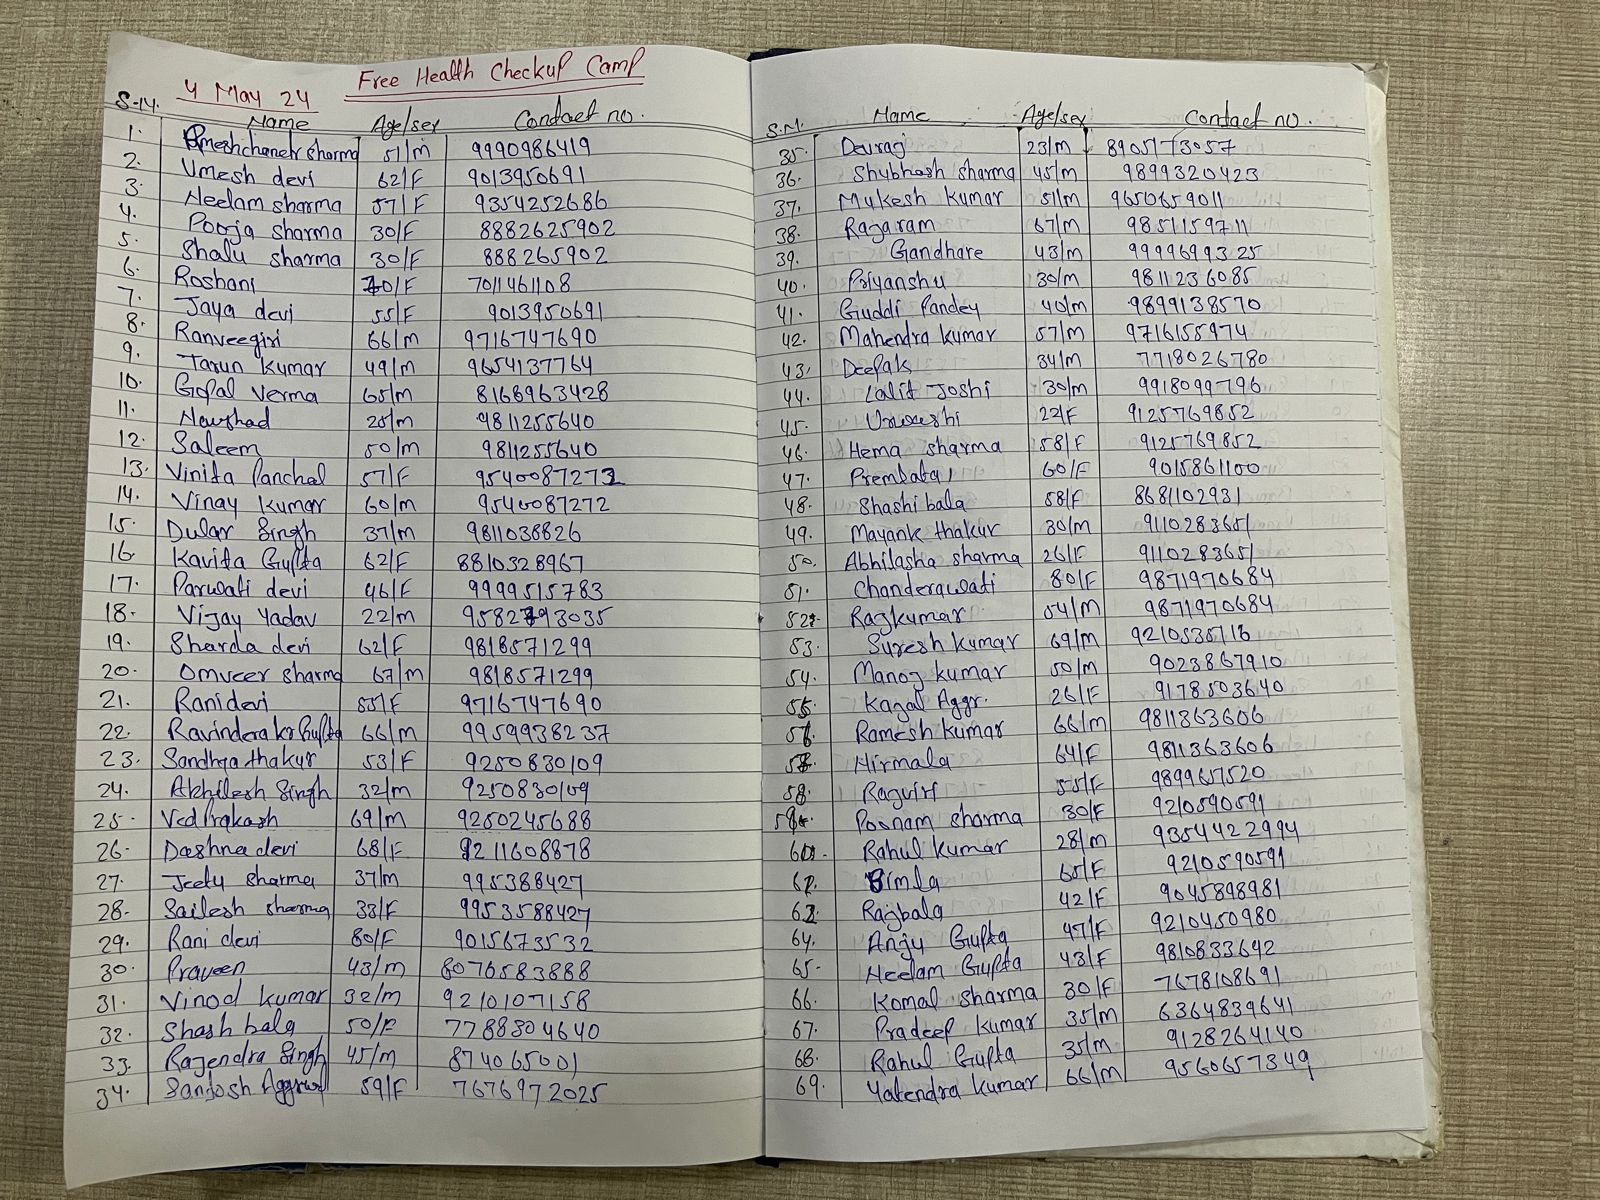 4 May 24 Free Health Checkup Camp
S.N. Name Age/sex Contact no.
1. 51/m 9990986419
2. Umesh devi 62/F 9013950691
3. Neelam sharma 57/F 9354252686
4. Pooja sharma 30/F 8882625902
5. Shalu sharma 30/F 888265902
6. Roshani 70/F 7011461108
7. Jaya devi 55/F 9013950691
8. Ranveegiri 66/m 9716747690
9. Tarun kumar 49/m 9654137764
10. Gopal verma 65/m 8168963428
11. Naushad 28/m 9811255640
12. Saleem 50/m 9811255640
13. Vinita Panchal 57/F 9540087272
14. Vinay kumar 60/m 9540087272
15. Dular Singh 37/m 9811038826
16. Kavita Gupta 62/F 8810328967
17. Parwati devi 46/F 9999515783
18. Vijay Yadav 22/m 9582793035
19. Sharda devi 62/F 9818571299
20. Omveer sharma 67/m 9818571299
21. Rani devi 55/F 9716747690
22. Ravindera kr Gupta 66/m 9959938237
23. Sandhya thakur 53/F 9250830109
24. Akhilesh Singh 32/m 9250830109
25. Ved Prakash 69/m 9250245688
26. Dashna devi 68/F 9211608878
27. Jeetu sharma 37/m 995388427
28. Sailesh sharma 33/F 9953588427
29. Rani devi 80/F 9015673532
30. Praveen 43/m 8076583888
31. Vinod kumar 32/m 9210107158
32. Shash bala 50/F 7788304640
33. Rajendra Singh 45/m 874065001
34. Santosh Aggrwal 59/F 7676972025
S.N. Name Age/sex Contact no.
35. Devraj 23/m 8905173057
36. Shubhash sharma 45/m 9899320423
37. Mukesh kumar 51/m 9650659011
38. Rajaram 67/m 9851159711
39. Gandhare 43/m 9999699325
40. Priyanshu 30/m 9811236085
41. Guddi Pandey 40/m 9899138570
42. Mahendra kumar 57/m 9716155974
43. Deepak 34/m 7718026780
44. Lalit Joshi 30/m 9918099796
45. 22/F 9125769852
46. Hema sharma 58/F 9125769852
47. Premlata 60/F 9015861100
48. Shashi bala 58/F 8681102931
49. Mayank thakur 30/m 9110283651
50. Abhilasha sharma 26/F 9110283651
51. Chanderawati 80/F 9871970684
52. Rajkumar 54/m 9871970684
53. Suresh kumar 69/m 9210535118
54. Manoj kumar 50/m 9023867910
55. Kajal Aggr. 26/F 9178503640
56. Ramesh kumar 66/m 9811363606
Nirmala 64/F 9811363606
58. 55/F 9899657520
59. Poonam sharma 30/F 9210590591
60. Rahul kumar 28/m 9354422994
Bimla 65/F 9210590591
Rajbala 42/F 9045898981
64. Anju Gupta 47/F 9210450980
65. Neelam Gupta 43/F 9810833642
66. Komal sharma 30/F 7678108691
67. Pradeep kumar 35/m 6364839641
68. Rahul Gupta 35/m 9128264140
69. Yatendra kumar 66/m 9560657349